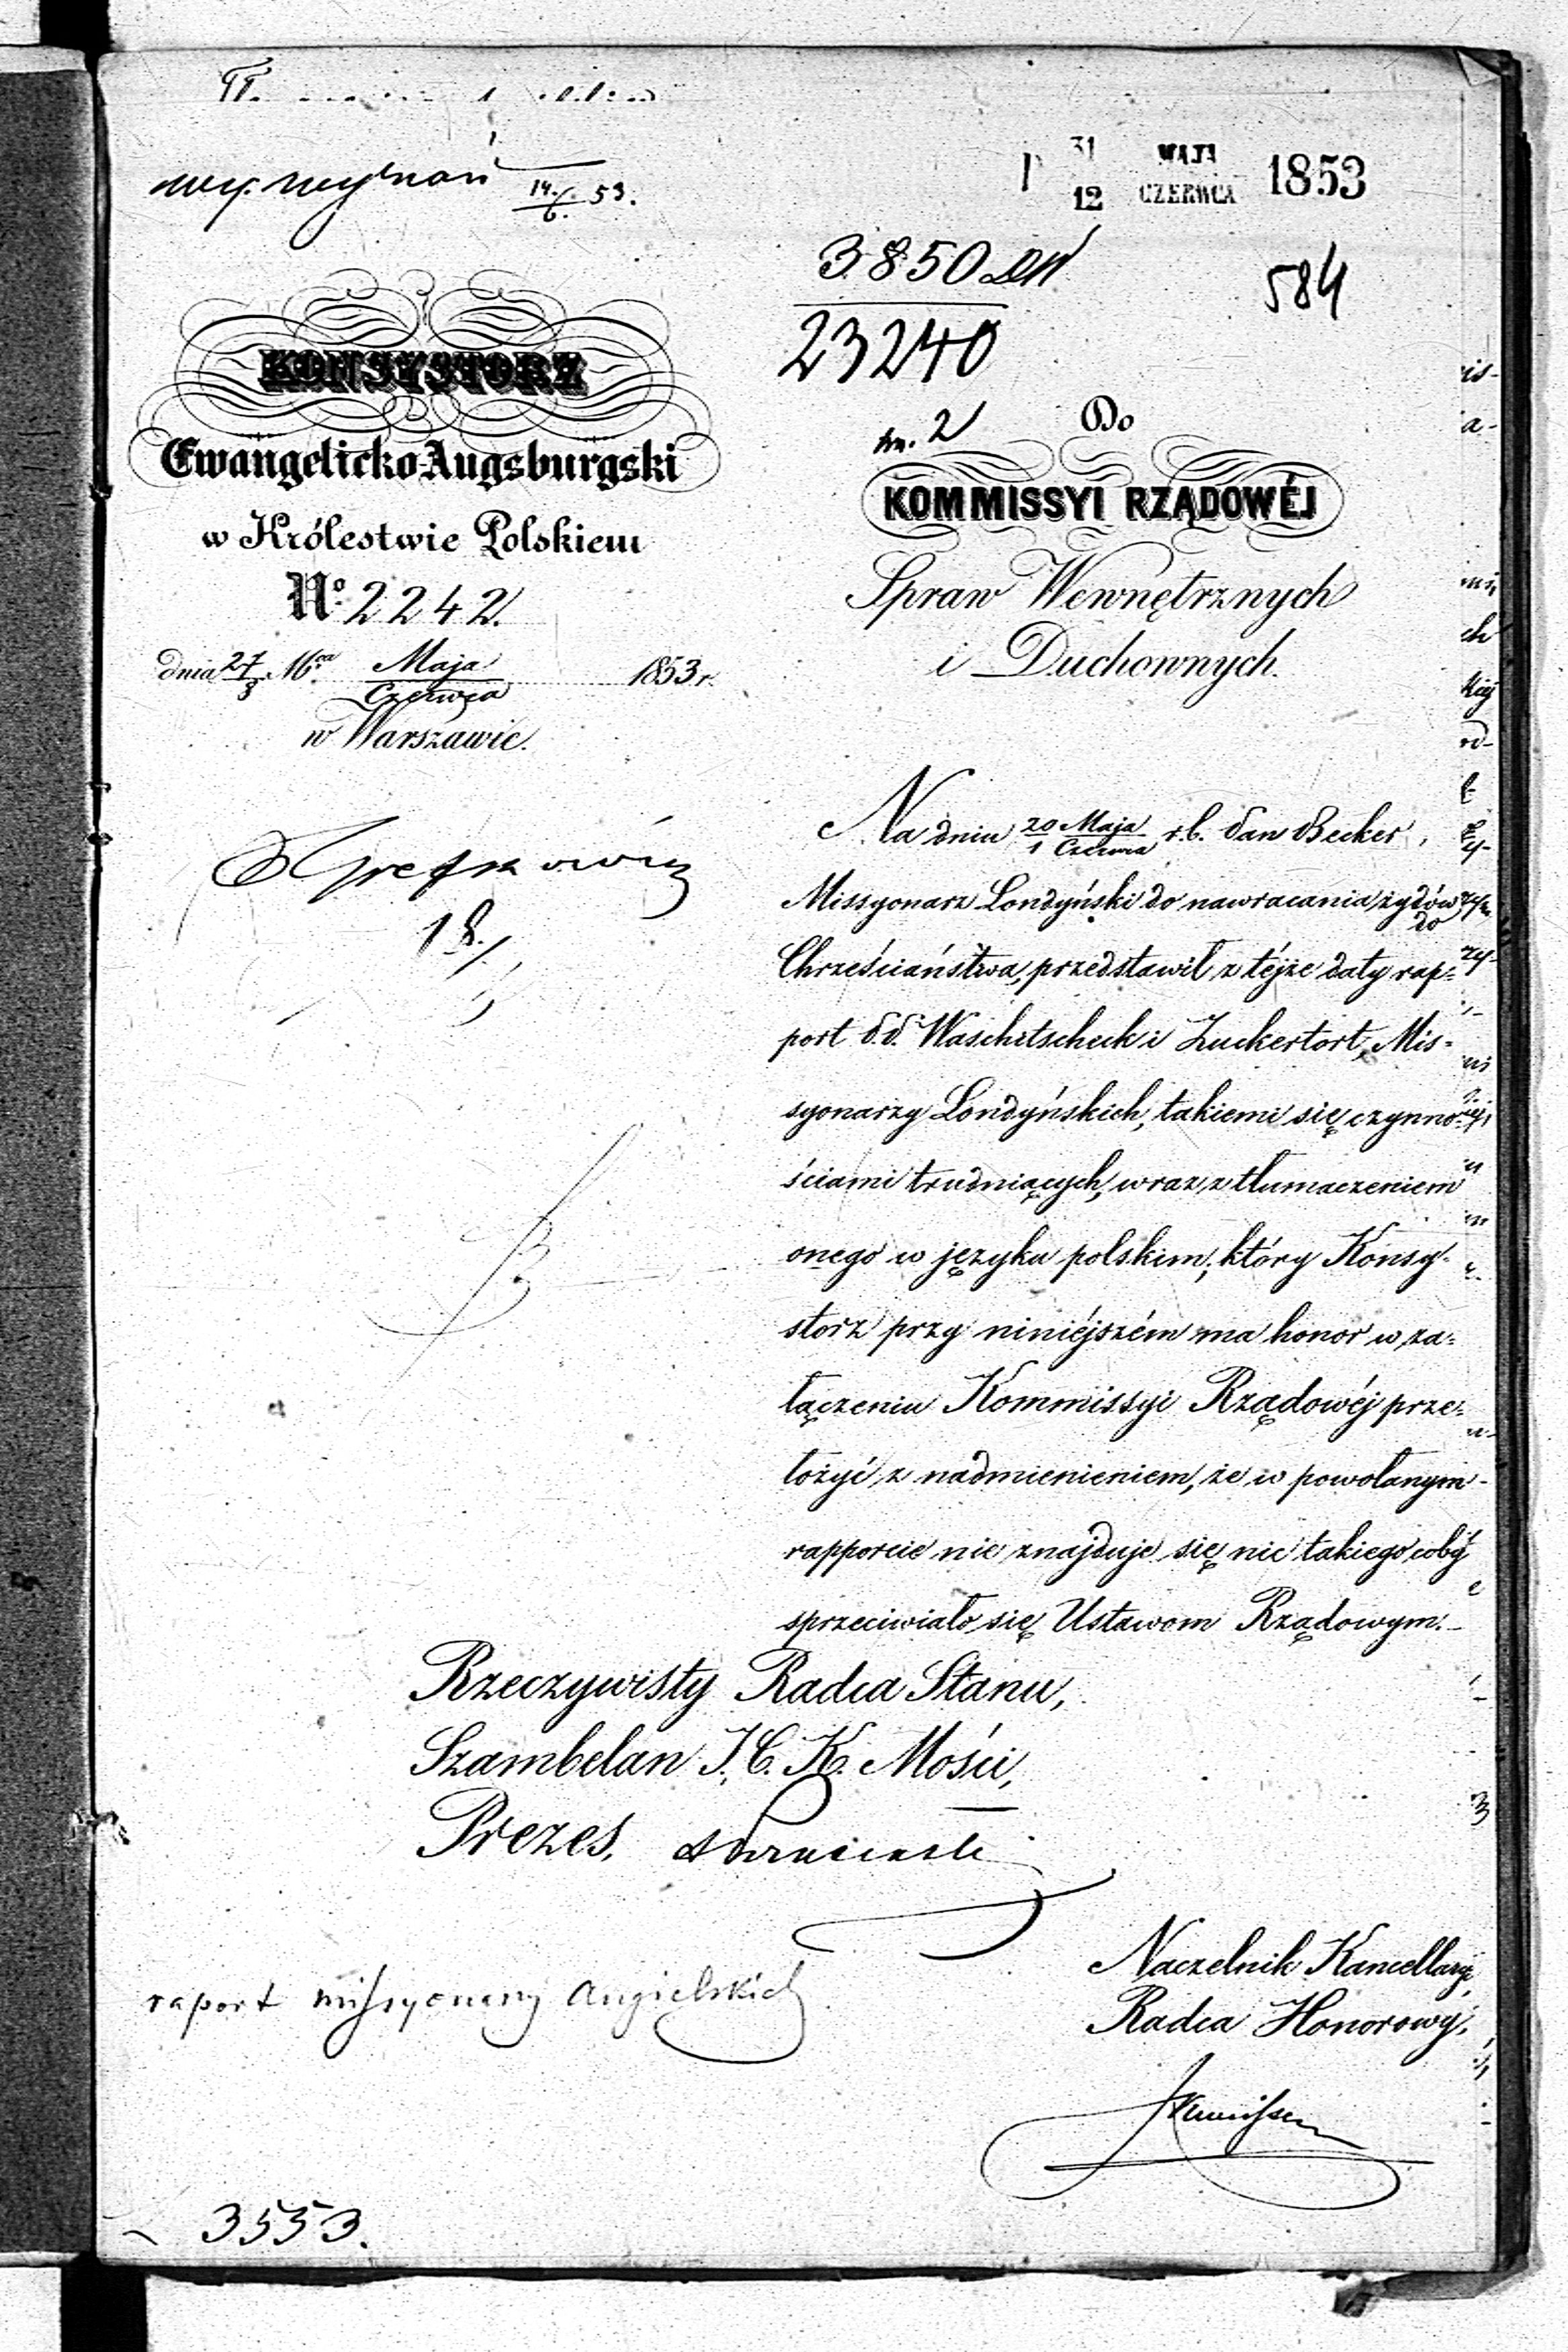 wyznań 14/6 53.
31 MAJA
12 CZERWCA 1853
3850
23240
584
KONSYSTORZ
Ewangelicko-Augsburgski
w Królestwie Polskiem
No 2242.
dnia 27/8 Maja/Czerwca 1853 r.
w Warszawie.
2
Do
KOMMISSYI RZĄDOWÉJ
Spraw Wewnętrznych
i Duchownych.
18.
Na dniu 20 Maja/1 Czerwca r.b. Pan Becker,
Missyonarz Londyński do nawracania żydów
do
Chrześciaństwa, przedstawił z téjże daty rap-
port P.P. Waschitscheck i Zuckertort, Mis-
syonarzy Londyńskich, takiemi się czynno-
ściami trudniących, wraz z tłumaczeniem
onego w języku polskim, który Konsy-
storz przy niniéjszém ma honor w za-
łączeniu Kommissyi Rządowéj prze-
łożyć z nadmienieniem, że w powołanym
rapporcie nie znajduje się nic takiego coby
sprzeciwiało się Ustawom Rządowym.
Rzeczywisty Radca Stanu,
Szambelan J. C. K. Mości,
Prezes,
Naczelnik Kancellaryi,
Radca Honorowy,
raport missyonarzy Angielskich
3553.